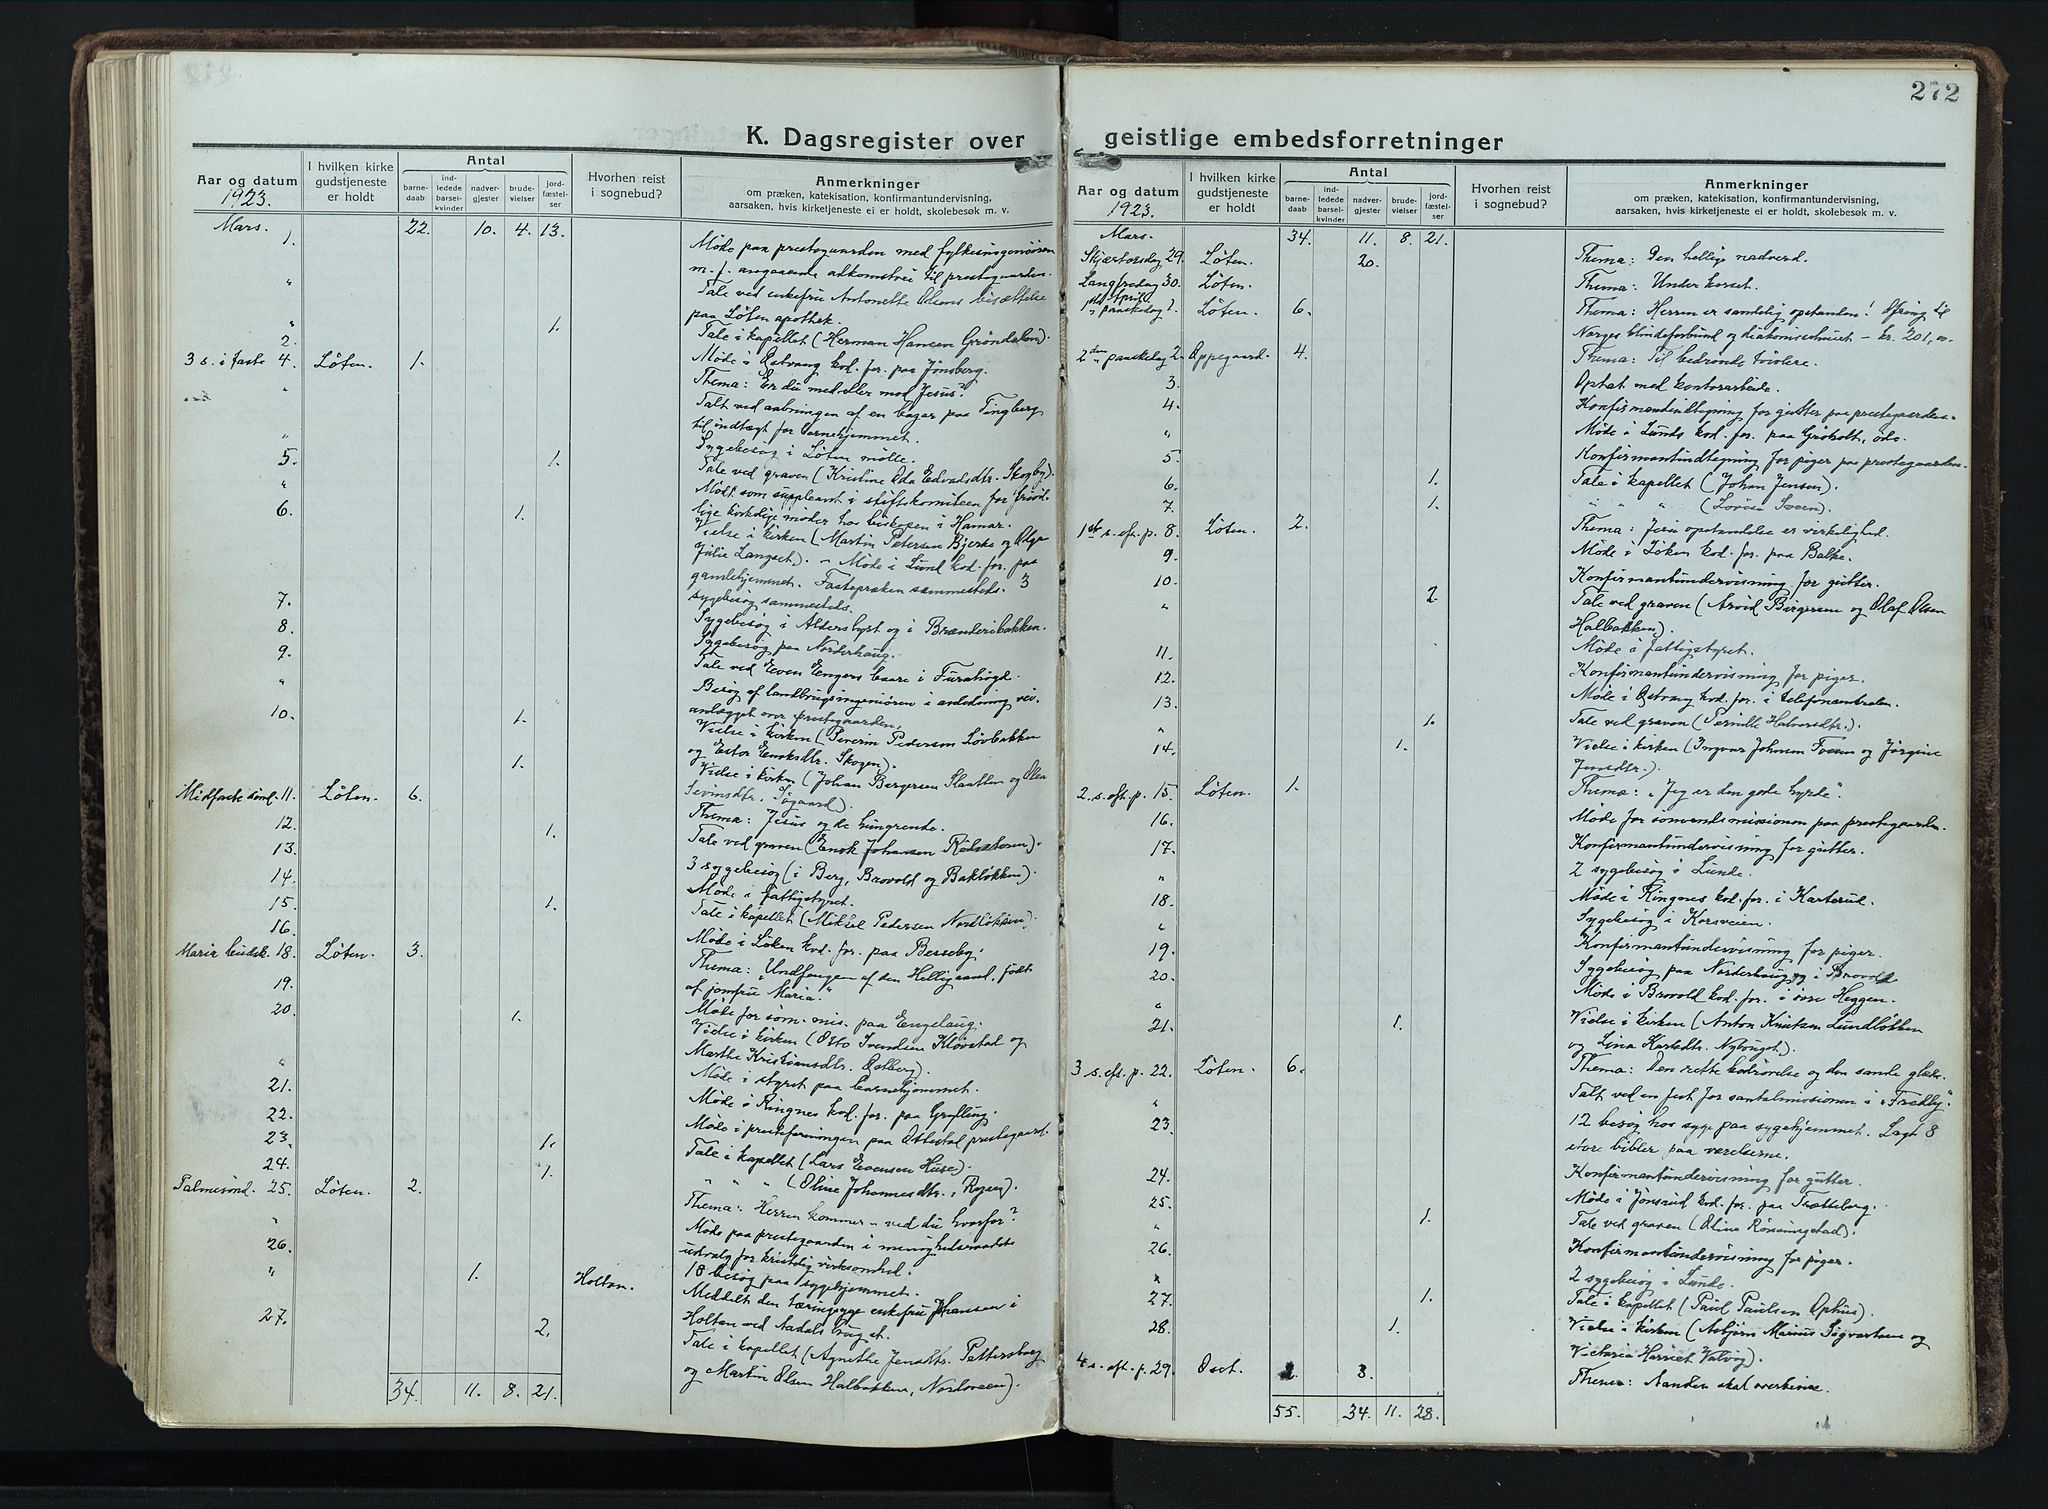 272
K. Dagsregister over geistlige embedsforretninger
Aar og datum
1923.
I hvilken kirke gudstjeneste er holdt
Antal
barnedaab
indledede barselkvinder
nadvergjester
brudevielser
jordfæstelser
Hvorhen reist i sognebud?
Anmerkninger
om præken, katekisation, konfirmantundervisning,
aarsaken, hvis kirketjeneste ei er holdt, skolebesøk m. v.
Mars. 22. 10. 4. 13.
1. Møde paa prestegaarden med fylkesingeniøren
m. f. angaaende adkomstvei til prestegaarden.
" Tale ved enkefru Antonette Olsens bisættelse
paa Løten apothek.
" 1. Tale i kapellet (Herman Hansen Grøndalen).
2. Møde i Østvang kod. for. paa Jønsberg.
3 s. i faste 4. Løten. 1. Thema: Er du med eller mod Jesus?
" Talt ved aabningen af en bazar paa Tingberg
til indtægt for barnehjemmet.
" Sygebesøg i Løten mølle.
5. 1. Tale ved graven (Kristine Oda Edvardsdtr. Skogby).
" Mødt som suppleant i stiftskomiteen for frivil-
lige kirkelige møder hos biskopen i Hamar.
6. 1. Vielse i kirken (Martin Petersen Bjerke og Olga
Julie Langset). - Møde i Lund kod. for. paa
gamlehjemmet. Fastepræken sammesteds. 3
sygebesøg sammesteds.
7. Sygebesøg i Alderslyst og i Brænderibakken.
8. Sygebesøg paa Norderhaug.
9. Tale ved Even Engers baare i Furuhøgd.
" Besøg af landbrugsingeniøren i anledning vei-
anlægget over prestegaarden.
10. 1. Vielse i kirken (Severin Pedersen Løvbakken
og Ester Enoksdtr. Skogen).
1. Vielse i kirken (Johan Bergersen Slaatten og Olea
Sevrinsdtr. Søgaard).
Midfaste sønd. 11. Løten. 6. Thema: Jesus og de hungrende.
12. 1. Tale ved graven (Enok Johansen Rødsætoren).
13. 3 sygebesøg (i Berg, Brovold og Bakløkken).
14. Møde i fattigstyret.
15. 1. Tale i kapellet (Mikkel Pedersen Nordløkken).
16. Møde i Løken kod. for. paa Berseby.
Mariæ budsk. 18. Løten. 3. Thema: "Undfangen af den Helligaand, født
af jomfru Maria."
19. Møde for søm. mis. paa Engelaug.
20. 1. Vielse i kirken (Otto Svendsen Kløvstad og
Marthe Kristiansdtr. Østberg).
" Møde i styret paa barnehjemmet.
21. Møde i Ringnes kod. for. paa Grylling.
22. Møde i presteforeningen paa Ottestad prestegaard.
23. 1. Tale i kapellet (Lars Evensen Huse).
24. 1. " " " (Oline Johannesdtr., Rogen).
Palmesønd. 25. Løten. 2. Thema: Herren kommer - ved du hvorfor?
" Møde paa prestegaarden i menighedsraadets
udvalg for kristelig virksomhed.
26. 18 besøg paa sygehjemmet.
" 1. Holtan. Meddelt den tæringsyge enkefru Johansen i
Holtan ved Aadals brug st.
27. 2. Tale i kapellet (Agnethe Jensdtr. Pettersborg
og Martin Olsen Halbakken, Nordveen).
34. 11. 8. 21.
Aar og datum
1923.
I hvilken kirke gudstjeneste er holdt
Antal
barnedaab
indledede barselkvinder
nadvergjester
brudevielser
jordfæstelser
Hvorhen reist i sognebud?
Anmerkninger
om præken, katekisation, konfirmantundervisning,
aarsaken, hvis kirketjeneste ei er holdt, skolebesøk m. v.
Mars. 34. 11. 8. 21.
Skjærtorsdag 29. Løten. 20. Thema: Den hellige nadverd.
Langfredag 30. Løten. Thema: Under korset.
April
1ste paaskedag 1. Løten. 6. Thema: Herren er sandelig opstanden! Ofring til
Norges blindeforbund og diakonissehuset - kr. 201,00.
2den paaskedag 2. Oppegaard. 4. Thema: Til bedrøvede tvivlere.
3. Optat med kontorarbeide.
4. Konfirmandindtegning for gutter paa prestegaarden.
" Møde i Lunds kod. for. paa Grøholt, ødo.
5. Konfirmantindtegning for piger paa prestegaarden.
6. 1. Tale i kapellet (Johan Jensen).
7. 1. " " " (Lovise Sveen).
1ste s. eft. p. 8. Løten. 2. Thema: Jesu opstandelse er virkelighed.
9. Møde i Løken kod. for. paa Balke.
10. Konfirmantundervisning for gutter.
" 2. Tale ved graven (Arvid Birgersen og Olaf Olsen
Halbakken).
11. Møde i fattigstyret.
12. Konfirmantundervisning for piger.
13. Møde i Østvang kod. for. i telefoncentralen.
" 1. Tale ved graven (Pernille Halvorsdtr.).
14. 1. Vielse i kirken (Ingvar Johnsen Fossum og Jørgine
Jensdtr.).
2. s. eft. p. 15. Løten. 1. Thema: "Jeg er den gode hyrde".
16. Møde for sømandsmissionen paa prestegaarden.
17. Konfirmantundervisning for gutter.
" 2 sygebesøg i Lunde.
18. Møde i Ringnes kod. for. i Karterud.
" Sygebesøg i Korsveien.
19. Konfirmantundervisning for piger.
20. Sygebesøg paa Norderhaug og i Brovold
" Møde i Brovold kod. for. i øvre Heggen.
21. 1. Vielse i kirken (Anton Knutsen Lundløkken
og Lina Karlsdtr. Nyborget).
3 s. eft. p. 22. Løten. 6. Thema: Den rette bedrøvelse og den sande glæde.
" Talt ved en fest for santalmissionen i "Fredly".
23. 12 besøg hos syge paa sygehjemmet. Lagt 8
store bibler paa værelserne.
24. Konfirmantundervisning for gutter.
25. Møde i Jønsrud kod. for. paa Trætteberg.
" 1. Tale ved graven (Oline Rønningstad).
26. Konfirmantundervisning for piger.
" 2 sygebesøg i Lunde.
27. 1. Tale i kapellet (Paul Paulsen Ophus).
28. 1. Vielse i kirken (Asbjørn Marius Sigvartsen og
Victoria Harriet Valvig).
4 s. eft. p. 29. Oset. 2. 3. Thema: Aanden skal overbevise.
55. 34. 11. 28.